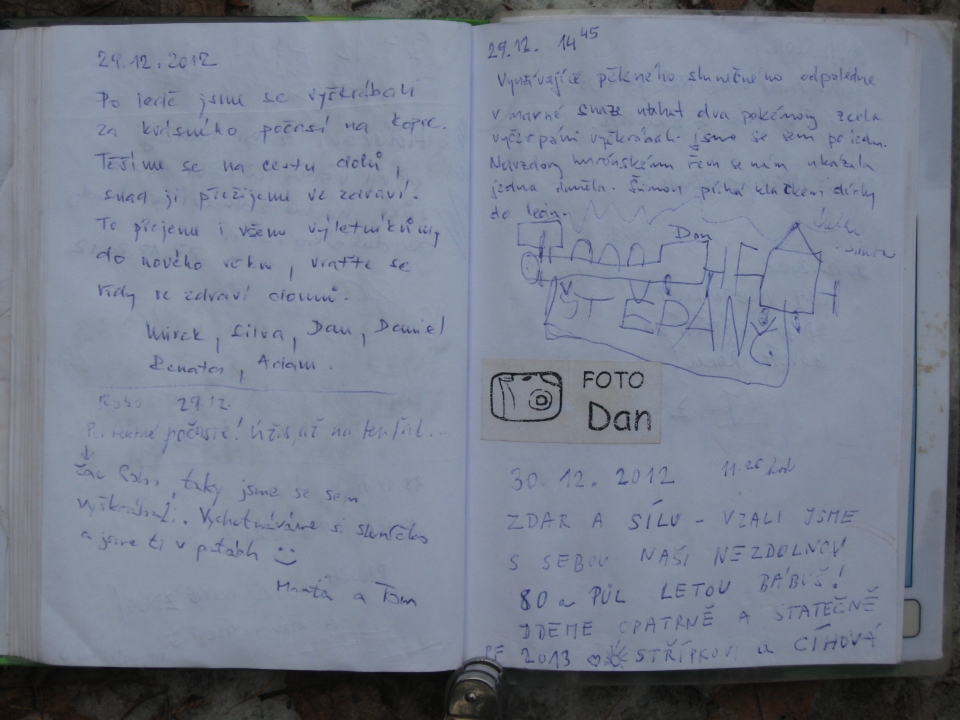 29.12.2012
Po ledě jsme se vyškrábali
za krásného počasí na kopec.
Těšíme se na cestu dolů,
snad ji přežijeme ve zdraví.
To přejeme i všem výletníkům
do nového roku, vraťte se
vždy ve zdraví domů.
Mirek, Silva, Dan, Daniel
Renata, Adam.
29.12.
počasie! až na ten
taky jsme se sem
vyškrábali. Vychutnáváme si sluníčko
a jsme ti v patách
a Tom
29.12. 14 45
Využívajíce pěkného slunečného odpoledne
v marné snaze utahat dva pokémony zcela
vyčerpáni vyškrábali jsme se sem po ledu.
Navzdory se nám ukázala
jedna Šimon píchá klackem dírky
do ledu.
Dan
ŠTĚPÁN
FOTO
Dan
30.12.2012 11.25 hod
ZDAR A SÍLU - VZALI JSME
S SEBOU NAŠI NEZDOLNOU
80 a PŮL LETOU BÁBUŠ!
JDEME OPATRNĚ A STATEČNĚ
PF 2013 STŘÍPKOVI a CÍHOVÁ